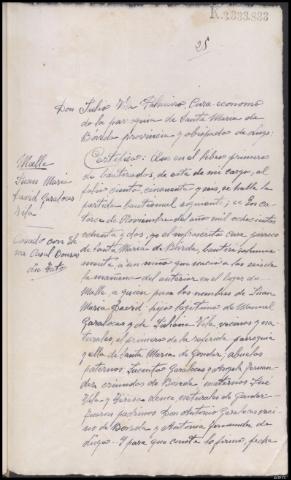 K.3.333.833
25
Don Julio Vila Palmeiro, Cura economo
de la parroquia de Santa Maria de
Bóveda provincia y obispado de Lugo:
Certifico: Que en el libro primero
de bautizados, de esta de mi cargo, al
folio ciento cincuenta y seis, se halla la
partida bautismal siguiente; = En ca=
torce de Noviembre del año mil ochocientos
ochenta y dos, yo el infrascrito cura parroco
de Santa Maria de Bóveda, bauticé solemne
mente, a un niño que nació a las seis de
la mañana del anterior en el lugar de
Malle, a quien puse los nombres de Juan
Maria David, hijo legitimo de Manuel
Garaloces y de Vila, vecinos y na=
turales, el primero de la referida parroquia
y ella de Santa Maria de Gondar; abuelos
paternos, Garaloces y Angela Fernan
dez, oriundos de Boveda, maternos José
Vila y Teresa naturales de Gondar=
fueron padrinos Don Antonio Garaloces veci
no de Boveda y Antonia Fernandez de
Lugo.= Y para que conste lo firmo, fecha
Malle
Juan Maria
David Garaloces
Vila
Casado con